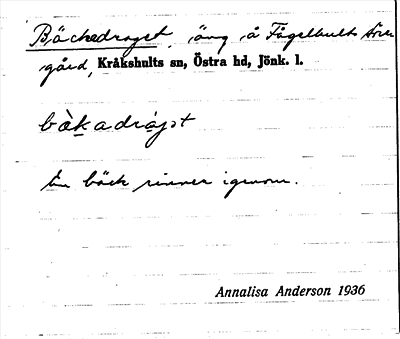 Bäckadraget, äng å Fågelhults Söre-
gård, Kråkshults sn, Östra hd, Jönk. l.
bäkadrajət
En bäck rinner igenom.
Annalisa Anderson 1936